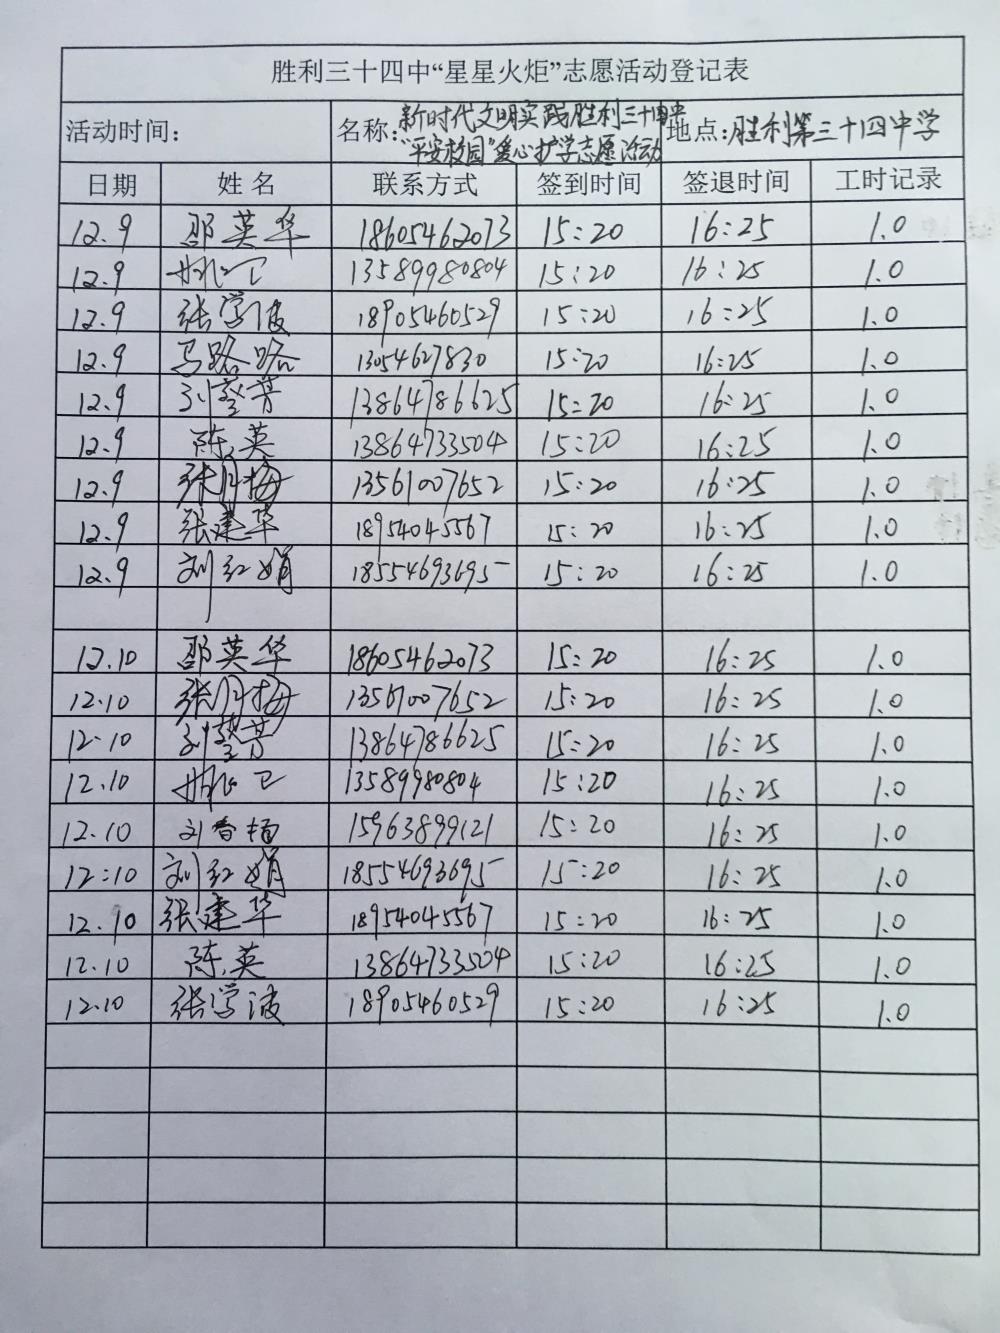 胜利三十四中“星星火炬”志愿活动登记表
活动时间： 名称：新时代文明实践胜利三十四中 地点：胜利第三十四中学
“平安校园”爱心护学志愿活动
日期 姓名 联系方式 签到时间 签退时间 工时记录
12.9 邵英华 18605462073 15:20 16:25 1.0
12.9 13589980804 15:20 16:25 1.0
12.9 张学波 18905460529 15:20 16:25 1.0
12.9 马路路 13054627830 15:20 16:25 1.0
12.9 刘 芳 13864786625 15:20 16:25 1.0
12.9 陈英 13864733504 15:20 16:25 1.0
12.9 张月梅 13561007652 15:20 16:25 1.0
12.9 张建华 18954045567 15:20 16:25 1.0
12.9 刘红娟 18554693695 15:20 16:25 1.0
12.10 邵英华 18605462073 15:20 16:25 1.0
12.10 张月梅 13561007652 15:20 16:25 1.0
12.10 刘 芳 13864786625 15:20 16:25 1.0
12.10 13589980804 15:20 16:25 1.0
12.10 刘春梅 15963899121 15:20 16:25 1.0
12:10 刘红娟 18554693695 15:20 16:25 1.0
12.10 张建华 18954045567 15:20 16:25 1.0
12.10 陈英 13864733504 15:20 16:25 1.0
12.10 张学波 18905460529 15:20 16:25 1.0